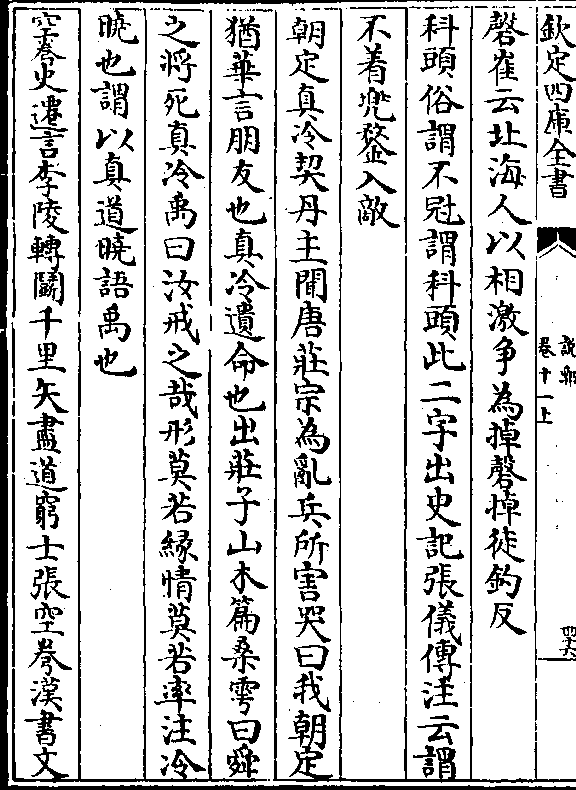 欽定四庫全書
說郛
卷十一上
四六
磬崔云北海人以相激爭為掉磬掉徒釣反
科頭俗謂不冠謂科頭此二字出史記張儀傳注云謂
不着兜鍪入敵
朝定真冷契丹主聞唐莊宗為亂兵所害哭曰我朝定
猶華言朋友也真冷遺命也出莊子山木篇桑雩曰舜
之將死真冷禹曰汝戒之哉形莫若緣情莫若率注冷
曉也謂以真道曉語禹也
空弮史遷言李陵轉鬬千里矢盡道窮士張空弮漢書文